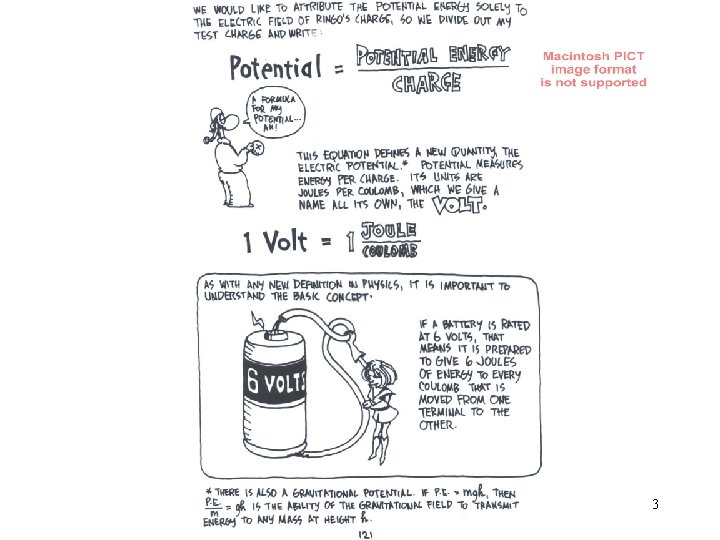 WE WOULD LIKE TO ATTRIBUTE THE POTENTIAL ENERGY SOLELY TO
THE ELECTRIC FIELD OF RINGO'S CHARGE, SO WE DIVIDE OUT MY
TEST CHARGE AND WRITE:
Potential = POTENTIAL ENERGY
CHARGE
Macintosh PICT
image format
is not supported
A FORMULA
FOR MY
POTENTIAL...
AH!
THIS EQUATION DEFINES A NEW QUANTITY, THE
ELECTRIC POTENTIAL.* POTENTIAL MEASURES
ENERGY PER CHARGE. ITS UNITS ARE
JOULES PER COULOMB, WHICH WE GIVE A
NAME ALL ITS OWN, THE VOLT.
1 Volt = 1 JOULE
COULOMB
AS WITH ANY NEW DEFINITION IN PHYSICS, IT IS IMPORTANT TO
UNDERSTAND THE BASIC CONCEPT.
IF A BATTERY IS RATED
AT 6 VOLTS, THAT
MEANS IT IS PREPARED
TO GIVE 6 JOULES
OF ENERGY TO EVERY
COULOMB THAT IS
MOVED FROM ONE
TERMINAL TO THE
OTHER.
6 VOLTS
* THERE IS ALSO A GRAVITATIONAL POTENTIAL. IF P.E. = mgh, THEN
P.E.
m = gh IS THE ABILITY OF THE GRAVITATIONAL FIELD TO TRANSMIT
ENERGY TO ANY MASS AT HEIGHT h.
121
3